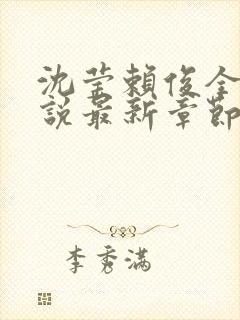 沈莹賴俊全
說最新章節
李秀满